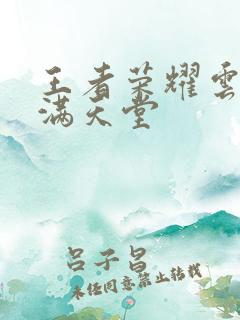 王者荣耀雲
满天堂
吕子昌
未经同意禁止转载